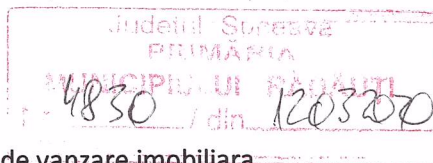 Judetul Suceava
PRIMĂRIA
MUNICIPIULUI RĂDĂUŢI
4830 / din 12032020
de vanzare imobiliara